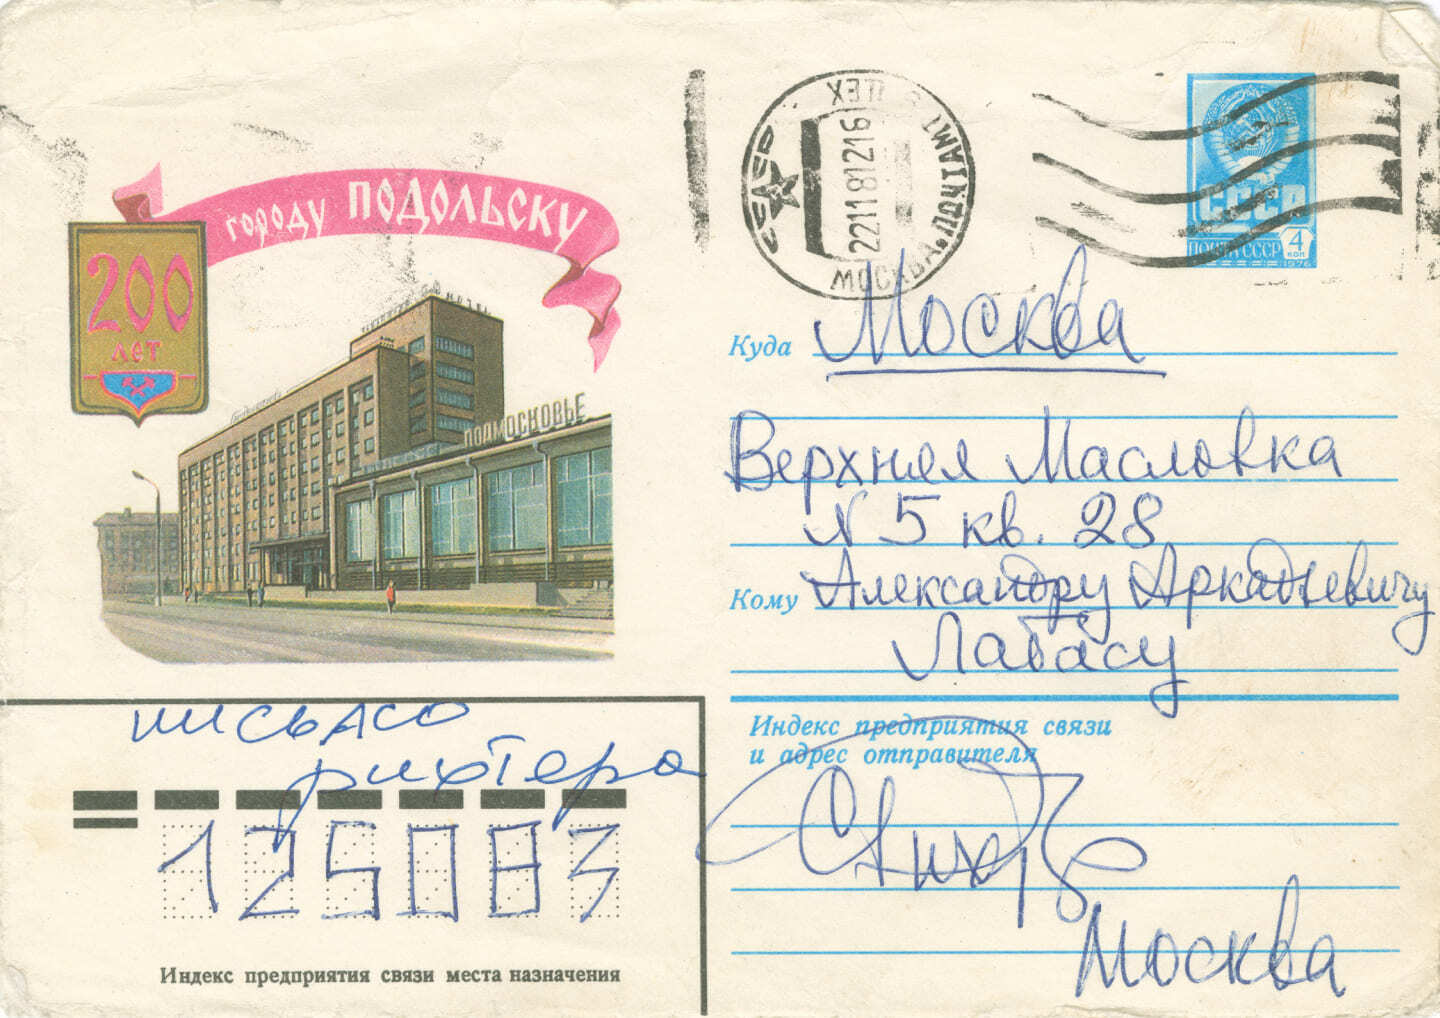 городу ПОДОЛЬСКУ
200
лет
ПОДМОСКОВЬЕ
СССР
22118 1216
МОСКВА, ПОЧТАМТ
ЦЕХ
СССР
ПОЧТА СССР
4
КОП
1976
Куда Москва
Верхняя Масловка
N 5 кв. 28
Кому Александру Аркадьевичу
Лабасу
Индекс предприятия связи
и адрес отправителя
Москва
письмо
рихтера
125083
Индекс предприятия связи места назначения